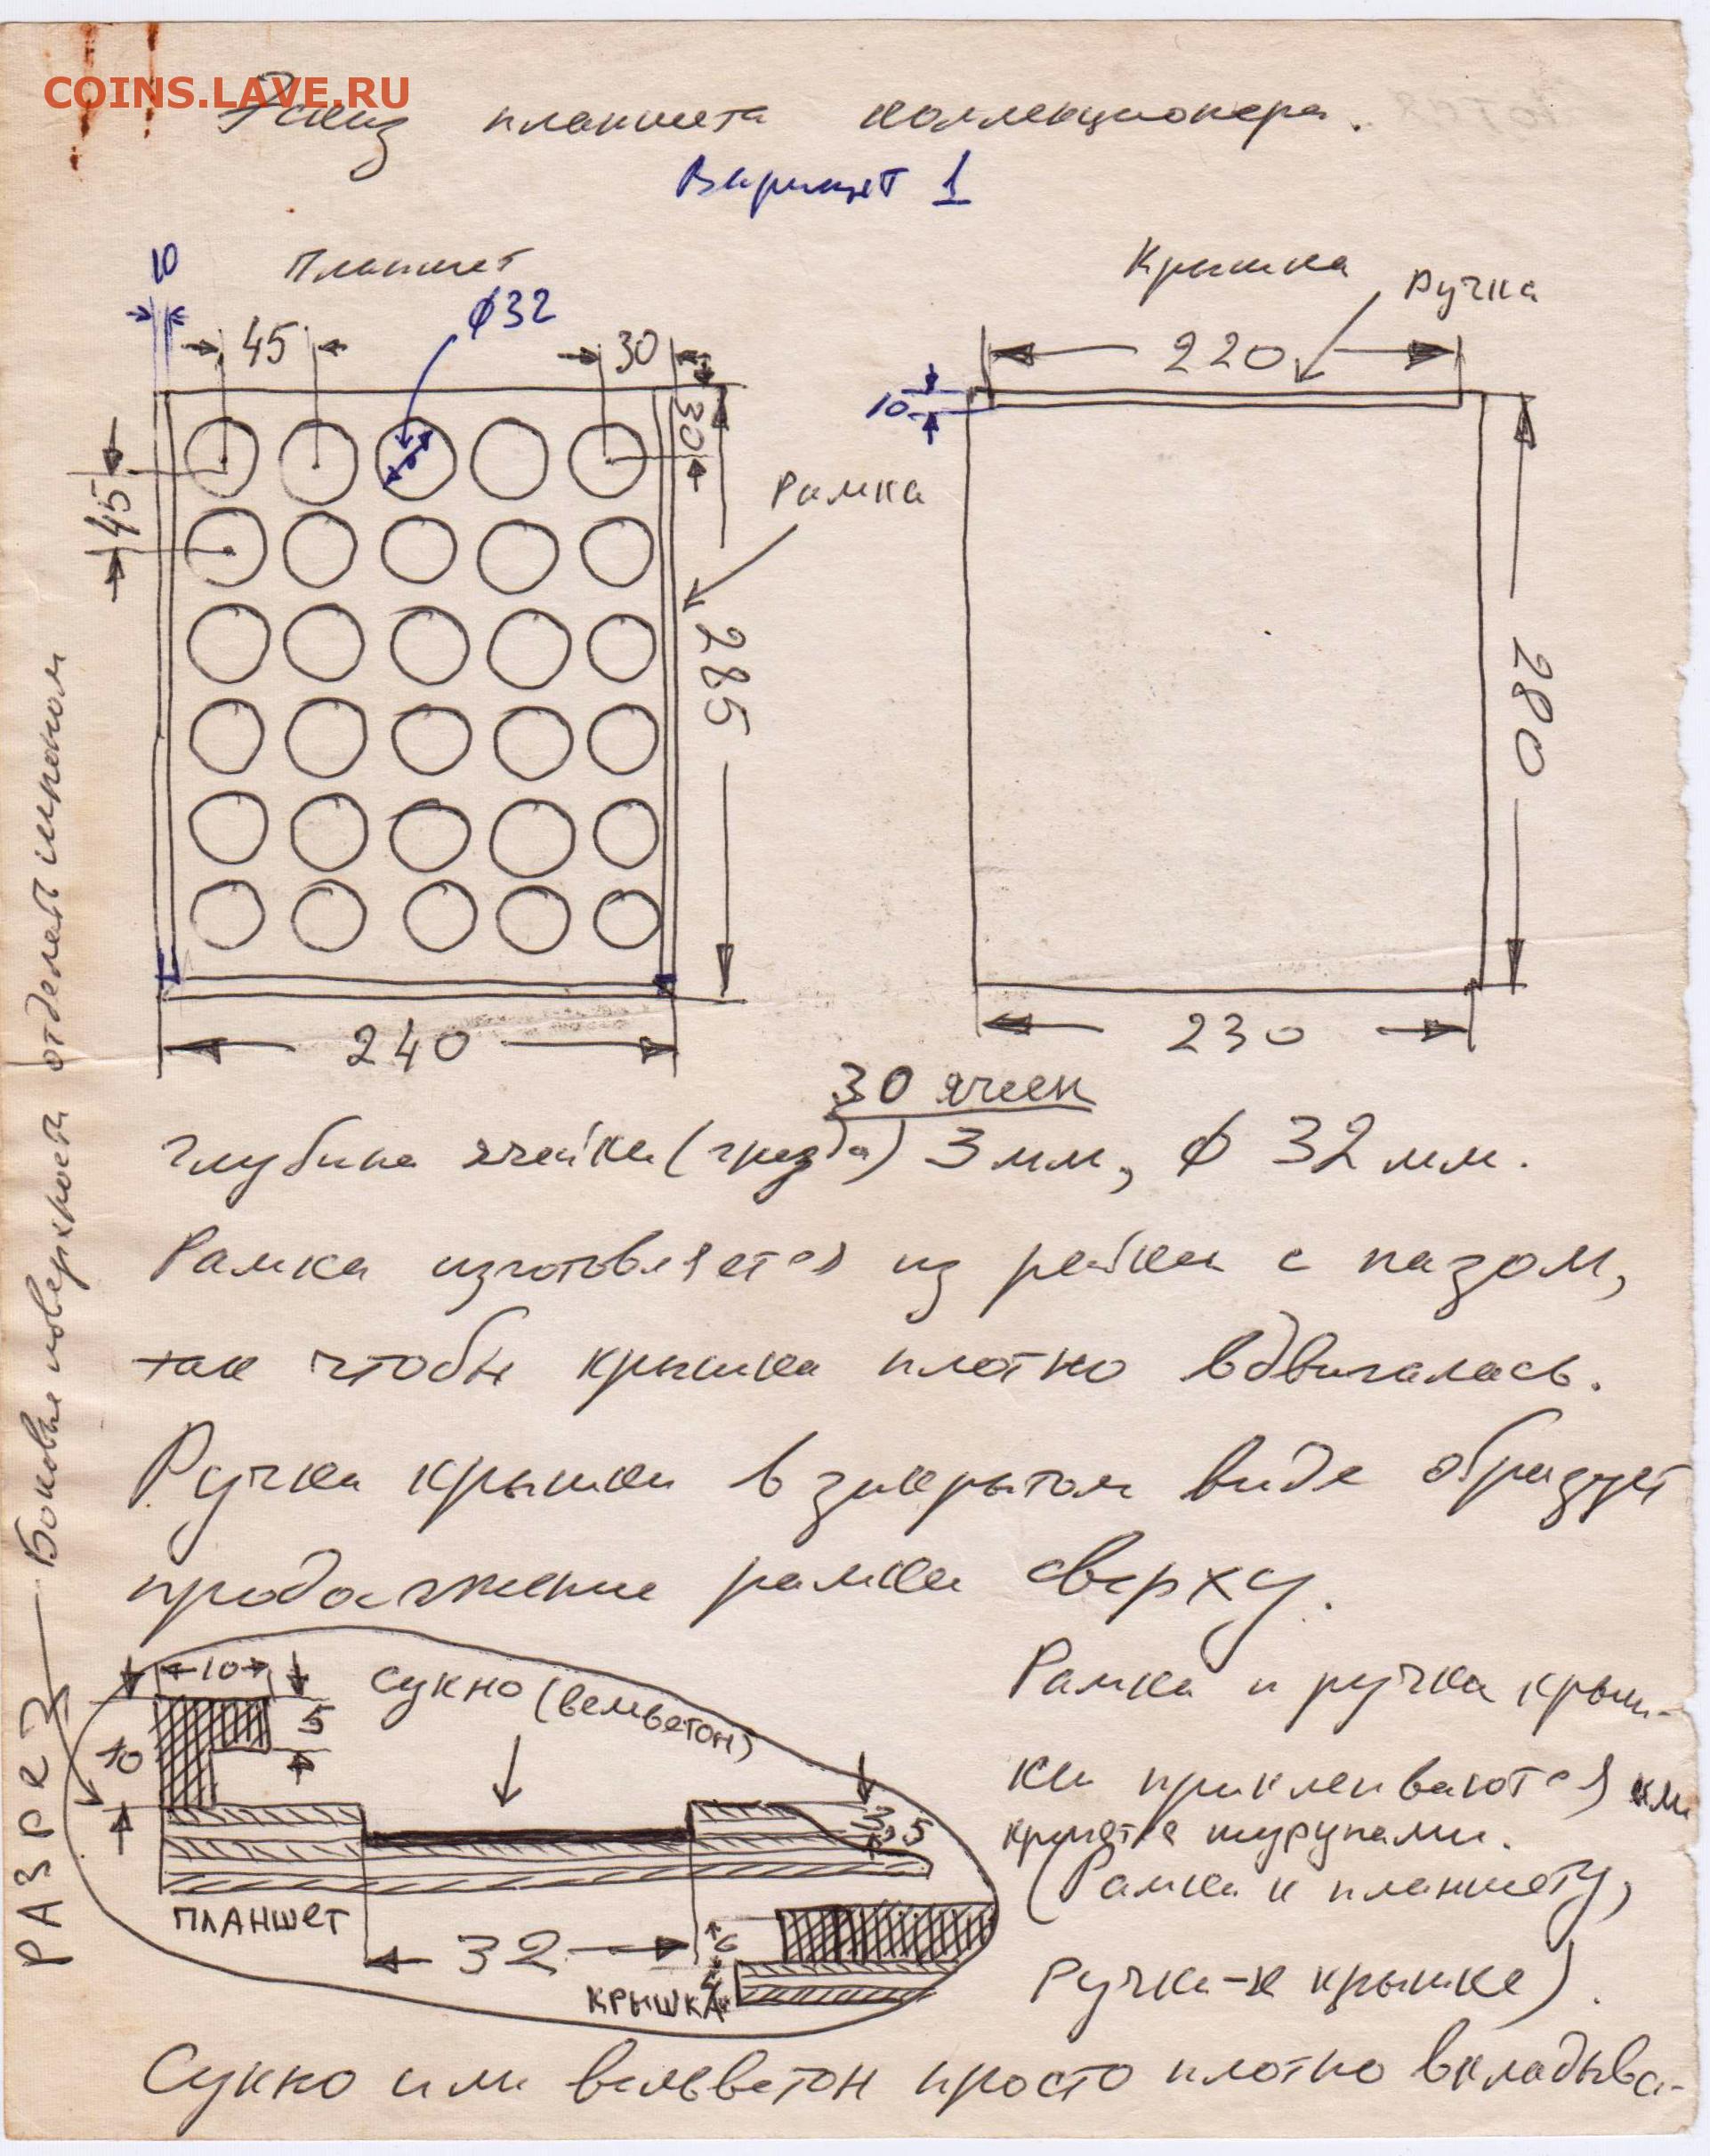 COINS.LAVE.RU
Эскиз планшета коллекционера.
Вариант 1
Планшет
Крышка
Ручка
10
45
ф32
30
30
45
Рамка
285
240
220
10
280
230
30 ячеек
Глубина ячейки (гнезда) 3 мм, ф 32 мм.
Рамка изготовляется из рейки с пазом,
так чтобы крышка плотно вдвигалась.
Ручка крышки в закрытом виде образует
продолжение рамки сверху.
Рамка и ручка крыш-
ки приклеиваются или
крепятся шурупами.
(Рамка к планшету,
Ручка-к крышке).
Сукно или вельветон просто плотно вкладыва-
10
5
10
сукно (вельветон)
3,5
ПЛАНШЕТ
32
6
КРЫШКА
РАЗРЕЗ — Боковые поверхности отделать шпоном